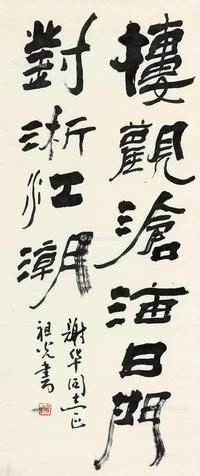 樓觀滄海日門
對浙江潮
謝华同志正
祖光書